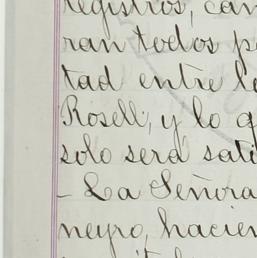 registros, can
ran todos p
tad entre l
Rosell, y lo q
solo será sati
- La Señora
neyro, hacien